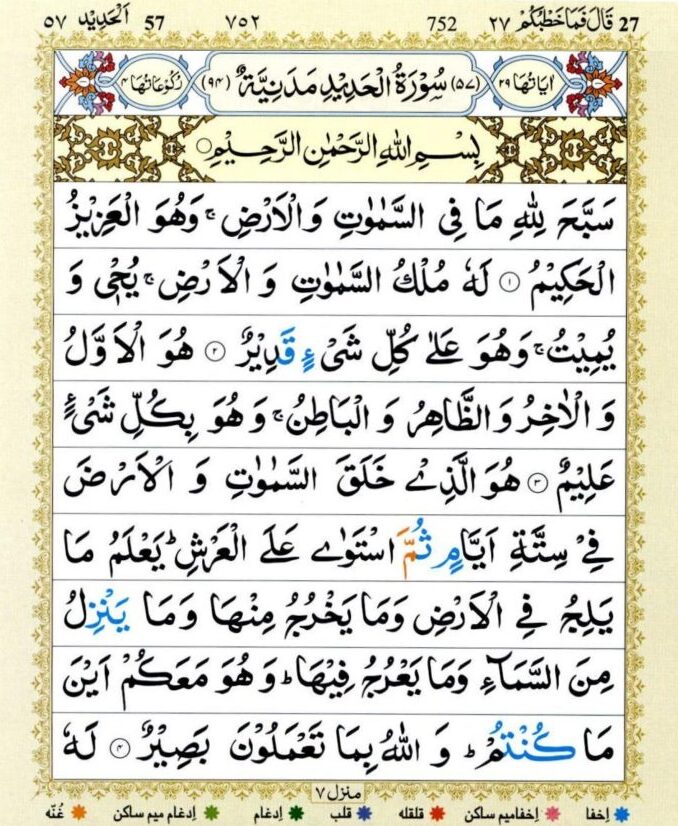 27 قَالَ فَمَا خَطْبُكُمْ ٢٧ 752 ٧٥٢ 57 اَلْحَدِيْد ٥٧
اٰيَاتُهَا ٢٩ (٥٧) سُوْرَةُ الْحَدِيْدِ مَدَنِيَّةٌ (٩٤) رُكُوْعَاتُهَا ٤
بِسْمِ اللّٰهِ الرَّحْمٰنِ الرَّحِيْمِ
سَبَّحَ لِلّٰهِ مَا فِى السَّمٰوٰتِ وَالْاَرْضِ ۚ وَهُوَ الْعَزِيْزُ
الْحَكِيْمُ ١ لَهٗ مُلْكُ السَّمٰوٰتِ وَ الْاَرْضِ ۚ يُحْىٖ وَ
يُمِيْتُ ۚ وَهُوَ عَلٰى كُلِّ شَىْءٍ قَدِيْرٌ ٢ هُوَ الْاَوَّلُ
وَ الْاٰخِرُ وَ الظَّاهِرُ وَ الْبَاطِنُ ۚ وَ هُوَ بِكُلِّ شَىْءٍ
عَلِيْمٌ ٣ هُوَ الَّذِىْ خَلَقَ السَّمٰوٰتِ وَ الْاَرْضَ
فِىْ سِتَّةِ اَيَّامٍ ثُمَّ اسْتَوٰى عَلَى الْعَرْشِ ؕ يَعْلَمُ مَا
يَلِجُ فِى الْاَرْضِ وَمَا يَخْرُجُ مِنْهَا وَمَا يَنْزِلُ
مِنَ السَّمَآءِ وَمَا يَعْرُجُ فِيْهَا ؕ وَ هُوَ مَعَكُمْ اَيْنَ
مَا كُنْتُمْ ؕ وَ اللّٰهُ بِمَا تَعْمَلُوْنَ بَصِيْرٌ ٤ لَهٗ
منزل ٧
اِخفا اِخفامیم ساكن قلقله قلب اِدغام اِدغام میم ساكن غُنّه